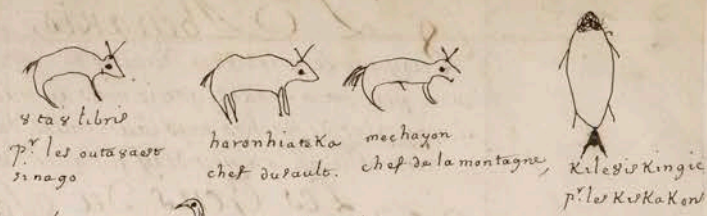 8ta8 libris
pr les outa8aest
sinago
haronhiateka
chef dusault.
mechayon
chef de la montagne,
Kile8isKingie
pr les KisKaKons